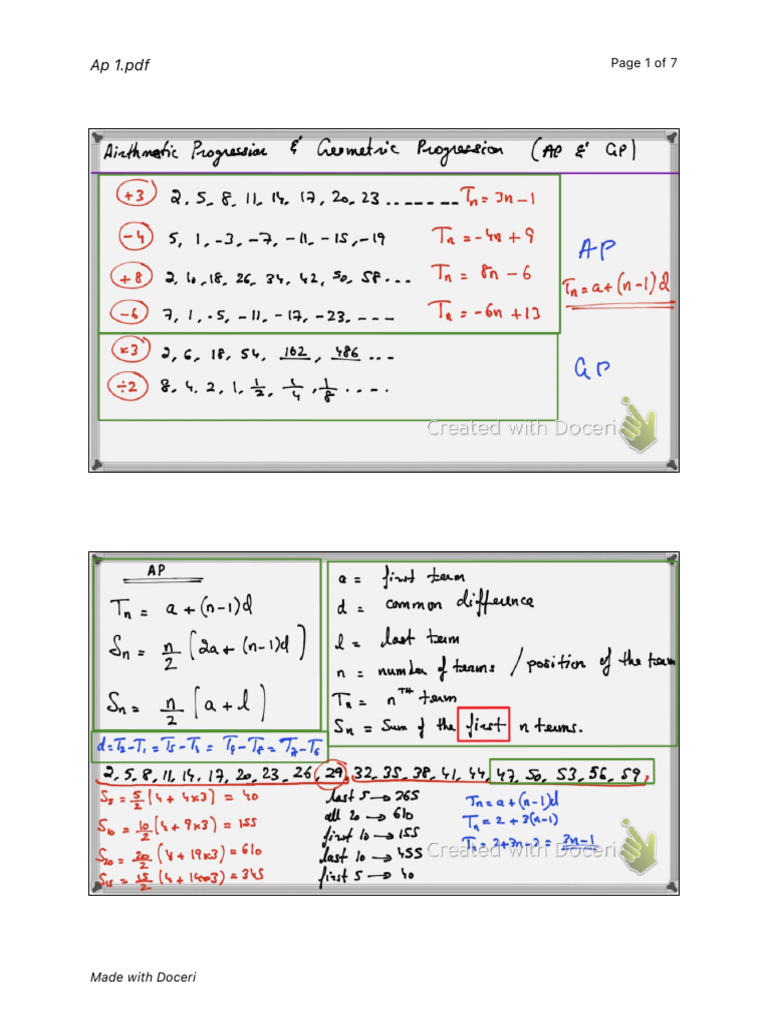 Ap 1.pdf
Page 1 of 7
Airthmatic Progression & Geometric Progression (AP & GP)
+3 2, 5, 8, 11, 14, 17, 20, 23 ....... Tn = 3n - 1
-4 5, 1, -3, -7, -11, -15, -19 Tn = -4n + 9
AP
+8 2, 10, 18, 26, 34, 42, 50, 58 ... Tn = 8n - 6
Tn = a + (n-1)d
-6 7, 1, -5, -11, -17, -23, --- Tn = -6n + 13
×3 2, 6, 18, 54, 162, 486 ...
GP
÷2 8, 4, 2, 1, 1/2, 1/4, 1/8 ....
Created with Doceri
AP
Tn = a + (n-1)d
Sn = n/2 [2a + (n-1)d]
Sn = n/2 [a + l]
a = first term
d = common difference
l = last term
n = number of terms / position of the term
Tn = nTH term
Sn = Sum of the first n terms.
2, 5, 8, 11, 14, 17, 20, 23, 26, 29, 32, 35, 38, 41, 44, 47, 50, 53, 56, 59,
S5 = 5/2 (4 + 4×3) = 40
S10 = 10/2 (4 + 9×3) = 155
S20 = 20/2 (4 + 19×3) = 610
S15 = 15/2 (4 + 14×3) = 345
last 5 → 265
all 20 → 610
first 10 → 155
last 10 → 455
first 5 → 40
Tn = a + (n-1)d
Tn = 2 + 3(n-1)
Tn = 2 + 3n - 3 = 3n - 1
Created with Doceri
Made with Doceri